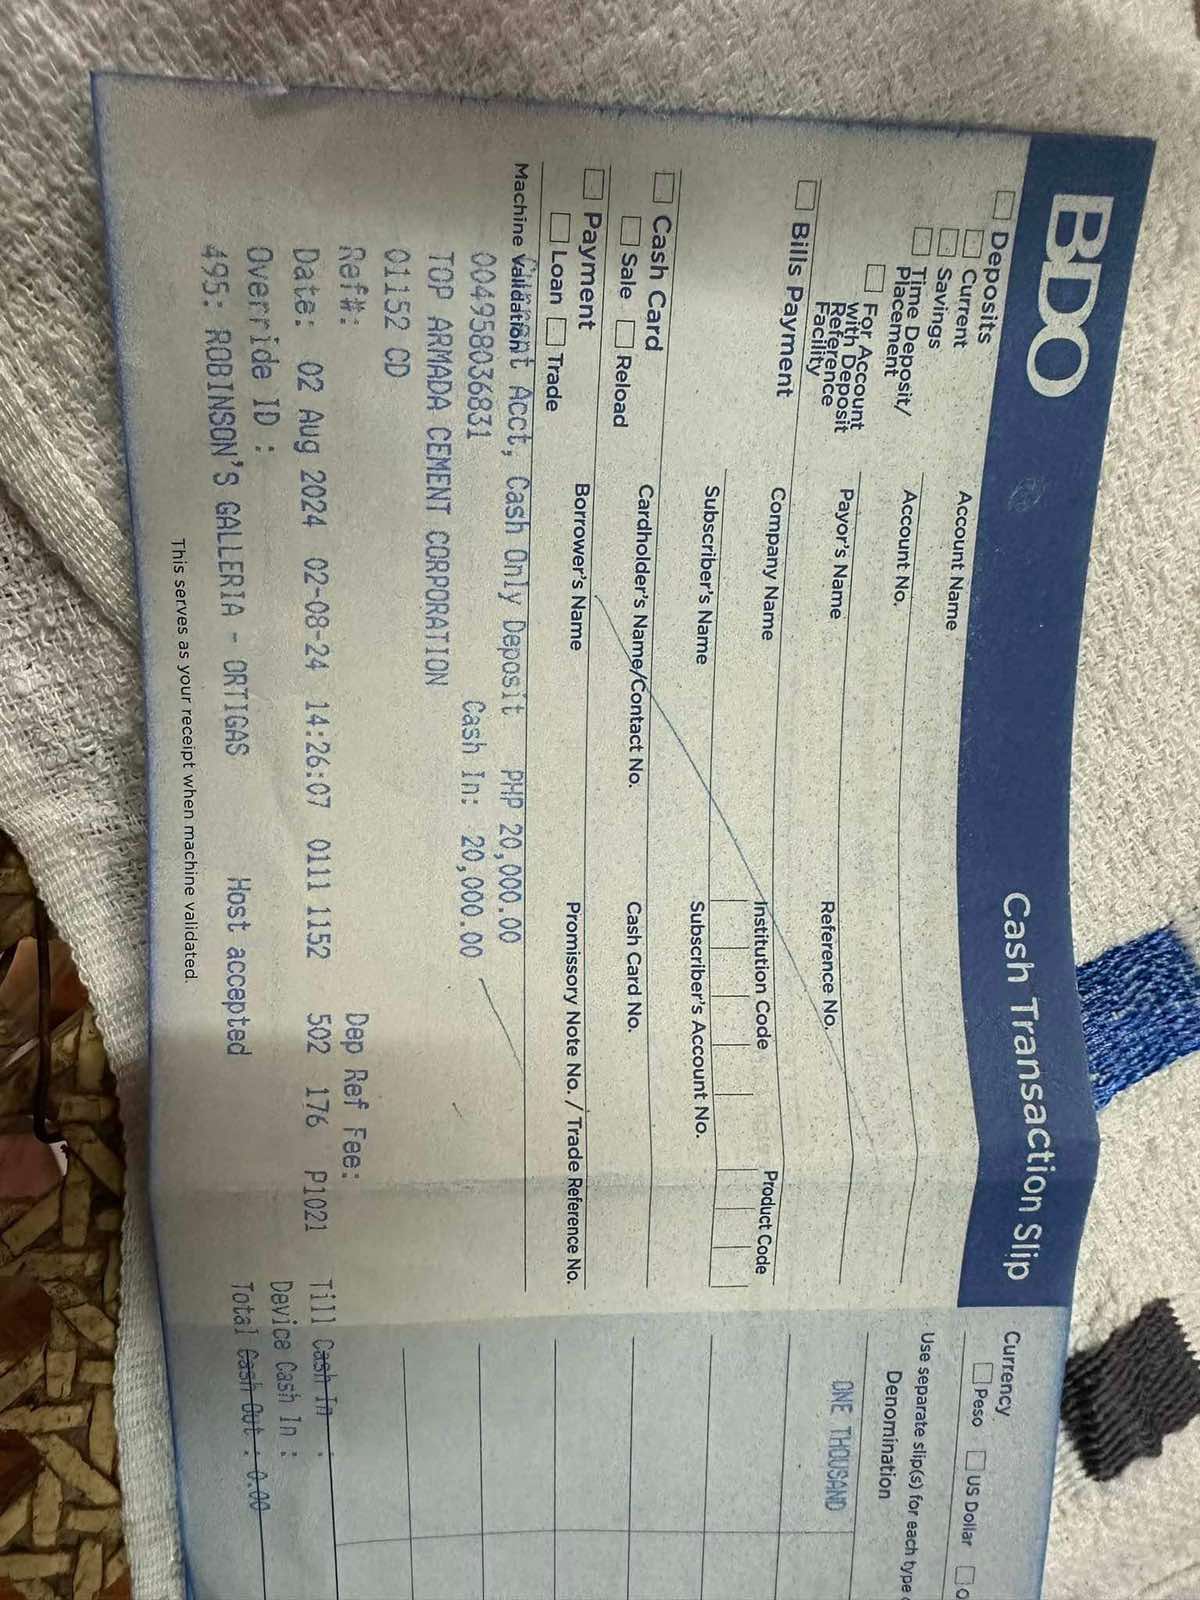 BDO
Cash Transaction Slip
Deposits
Current
Savings
Time Deposit/
Placement
For Account
with Deposit
Reference
Facility
Account Name
Account No.
Payor's Name
Reference No.
Bills Payment
Company Name
Institution Code
Product Code
Subscriber's Name
Subscriber's Account No.
Cash Card
Sale
Reload
Cardholder's Name/Contact No.
Cash Card No.
Payment
Loan
Trade
Borrower's Name
Promissory Note No. / Trade Reference No.
Machine Validation
Current Acct, Cash Only Deposit PHP 20,000.00
004958036831 Cash In: 20,000.00
TOP ARMADA CEMENT CORPORATION
01152 CD
Ref#: Dep Ref Fee:
Date: 02 Aug 2024 02-08-24 14:26:07 0111 1152 502 176 P1021
Override ID :
495: ROBINSON'S GALLERIA - ORTIGAS Host accepted
This serves as your receipt when machine validated.
Currency
Peso
US Dollar
Use separate slip(s) for each type
Denomination
ONE THOUSAND
Till Cash In :
Device Cash In :
Total Cash Out : 0.00